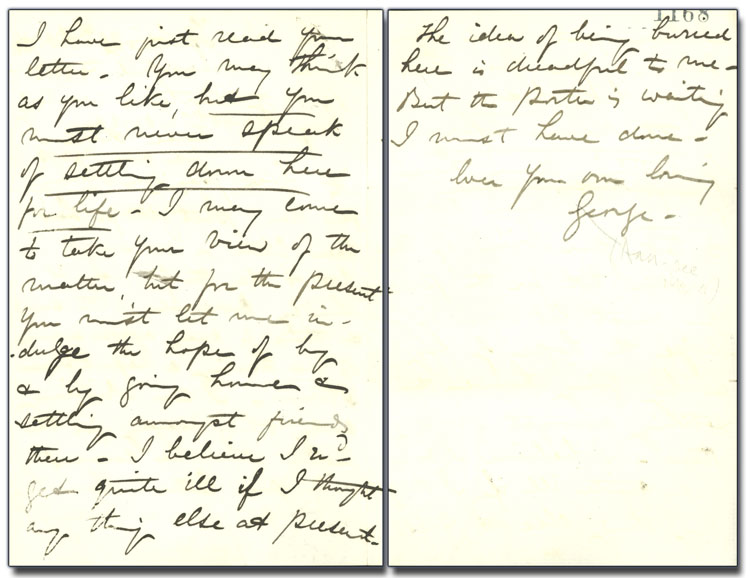 I have just read your
letter - You may think
as you like, but you
must never speak
of settling down here
for life - I may come
to take your view of the
matter, but for the present
you must let me in-
dulge the hope of by
& by going home &
settling amongst friends
there - I believe I sh^d
get quite ill if I thought
any thing else at present -
1168
The idea of being buried
here is dreadful to me -
But the porter is waiting
I must have done -
Ever your own loving
George -